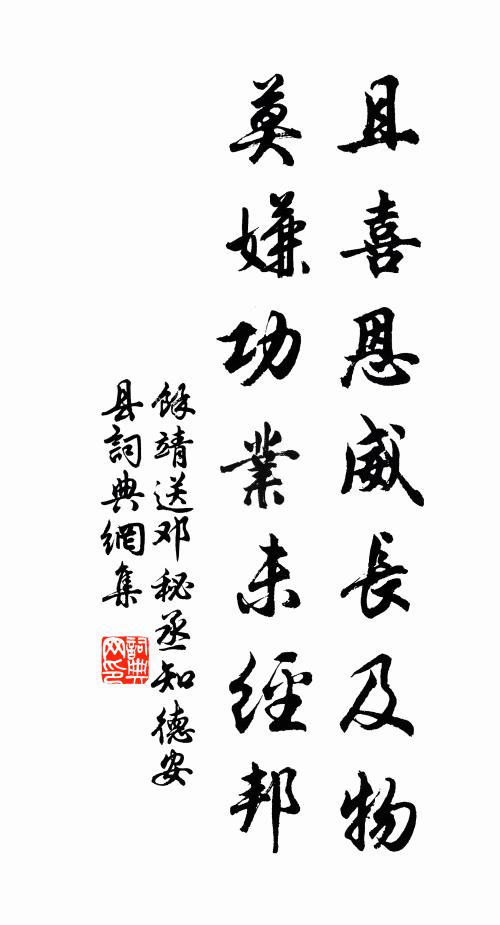 且喜恩威長及物
莫嫌功業未經邦
餘靖送邓秘丞知德安
县詞典網集
詞典
网印